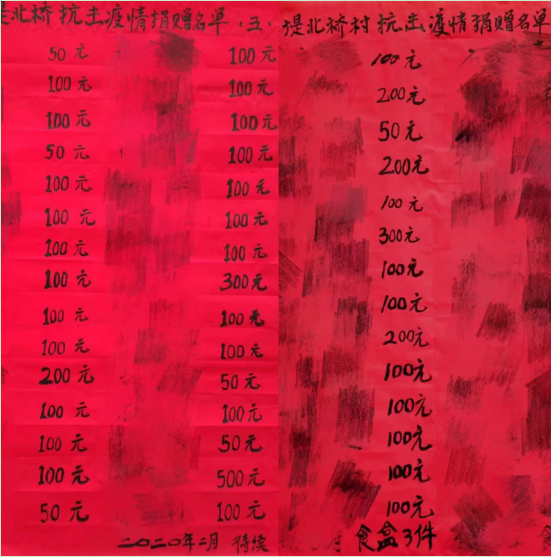 堤北桥 抗击疫情捐赠名单(五)
50元 100元
100元 100元
100元 100元
50元 100元
100元 100元
100元 100元
100元 100元
100元 300元
100元 100元
100元 100元
200元 50元
100元 100元
100元 50元
100元 500元
50元 100元
二〇二〇年二月 待续
堤北桥村 抗击疫情捐赠名单
100元
200元
50元
200元
100元
300元
100元
100元
200元
100元
100元
100元
100元
100元
食盒3件